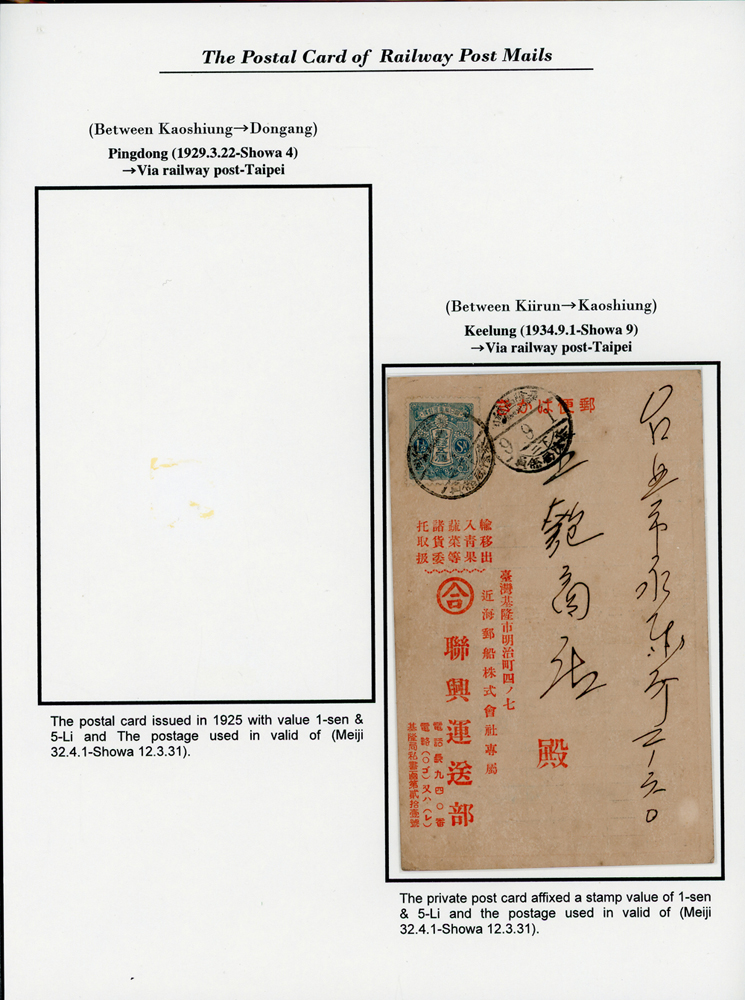 The Postal Card of Railway Post Mails
(Between Kaoshiung→Dongang)
Pingdong (1929.3.22-Showa 4)
→Via railway post-Taipei
The postal card issued in 1925 with value 1-sen &
5-Li and The postage used in valid of (Meiji
32.4.1-Showa 12.3.31).
(Between Kiirun→Kaoshiung)
Keelung (1934.9.1-Showa 9)
→Via railway post-Taipei
郵便はがき
9.9.1
輸移出
入青果
蔬菜等
諸貨委
托取扱
臺灣基隆市明治町四ノ七
近海郵船株式會社專屬
合
聯興運送部
電話長九四〇番
殿
The private post card affixed a stamp value of 1-sen
& 5-Li and the postage used in valid of (Meiji
32.4.1-Showa 12.3.31).